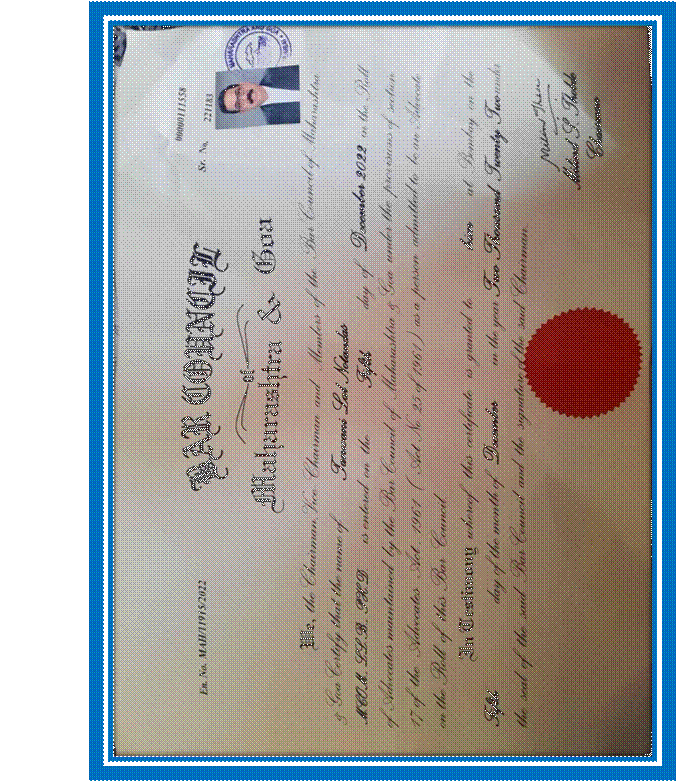 00000111558
Sr. No. 221183
MAHARASHTRA AND GOA
En. No. MAH/11915/2022
BAR COUNCIL
of
Maharashtra & Goa
We, the Chairman, Vice Chairman and Members of the Bar Council of Maharashtra
& Goa Certify that the name of
M.COM. LL.B. PH.D is entered on the Fifth day of December 2022 in the Roll
of Advocates maintained by the Bar Council of Maharashtra & Goa under the provisions of section
17 of the Advocates Act, 1961 ( Act No. 25 of 1961 ) as a person admitted to be an Advocate
on the Roll of this Bar Council
In Testimony whereof this certificate is granted to at Bombay on the
Fifth day of the month of December in the year Two Thousand Twenty Two under
the seal of the said Bar Council and the signature of the said Chairman.
Chairman